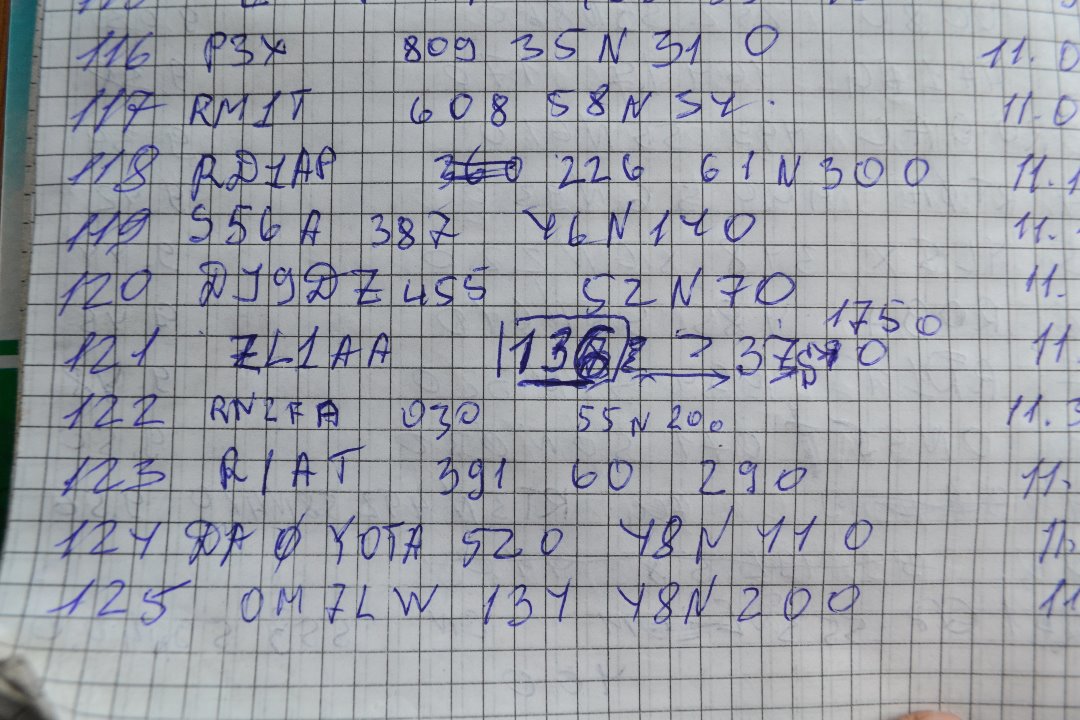 116 P3X 809 35N 31 0 11.0
117 RM1T 608 58N 34. 11.0
118 RD1AP 226 61N300 11.1
119 S56A 387 46N140 11.
120 DJ9DZ 455 52N70 11.
1750
121 ZL1AA 11.
122 RN2FA 030 55N200 11.3
123 R1AT 391 60 290 11.
124 DAØYOTA 520 48N 110 11.
125 OM7LW 134 48N200 11